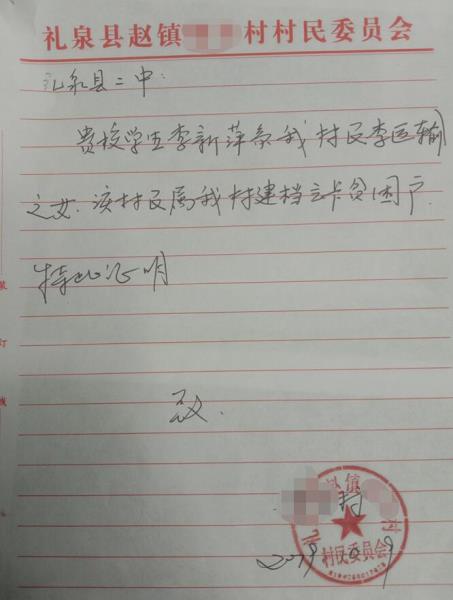 礼泉县赵镇 村村民委员会
礼泉县二中：
贵校学生李新萍系我村民李运辅
之女．该村民属我村建档立卡贫困户．
特此证明
致．
村
镇 村
村民委员会
2019.10.9
装
订
线